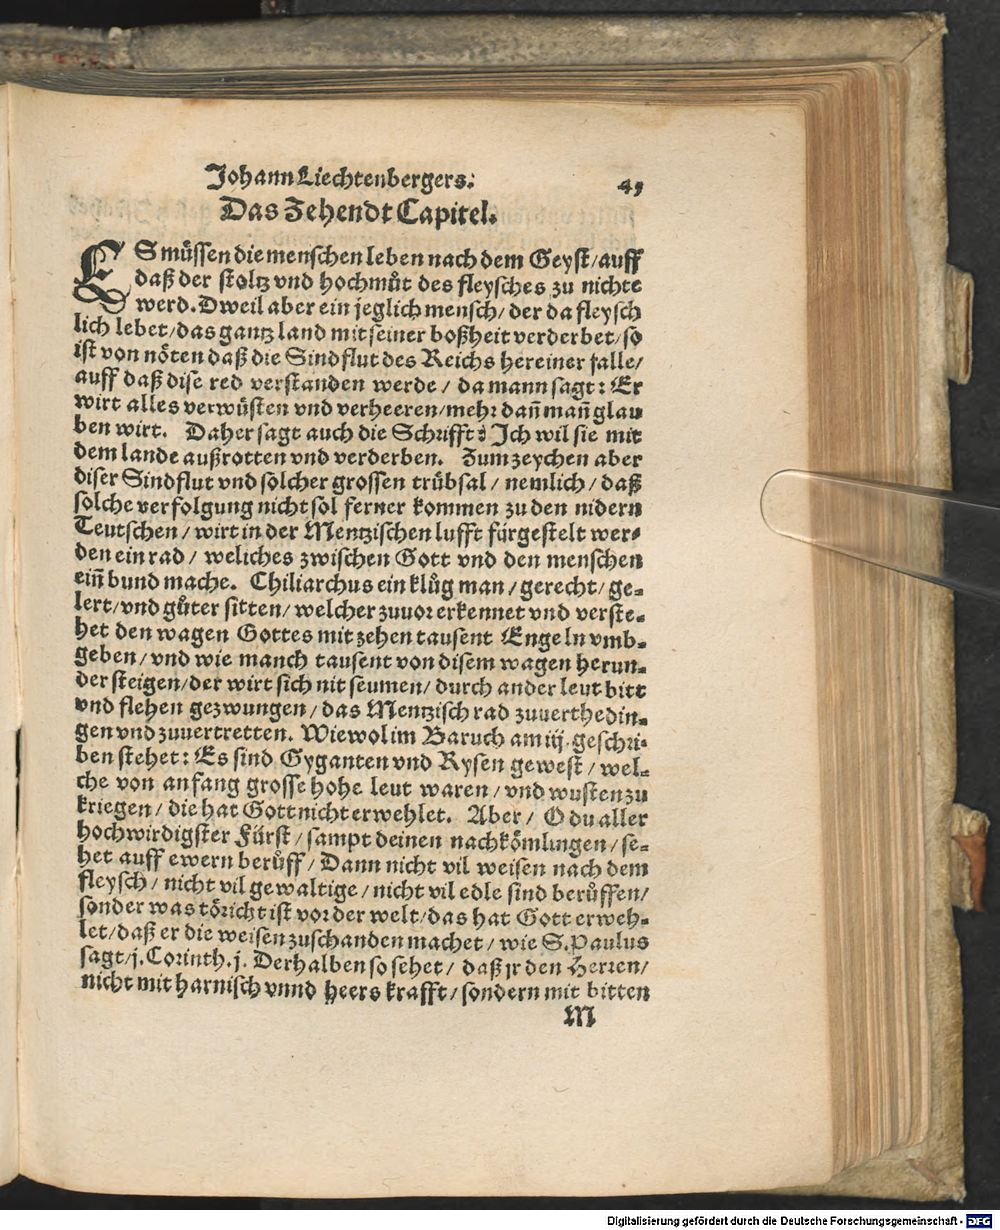 Johann Liechtenbergers. 45
Das Zehendt Capitel.
ES müssen die menschen leben nach dem Geyst/auff
daß der stoltz vnd hochmůt des fleysches zu nichte
werd. Dweil aber ein jeglich mensch/ der da fleysch
lich lebet/das gantz land mit seiner boßheit verderbet/so
ist von nöten daß die Sindflut des Reichs hereiner falle/
auff daß dise red verstanden werde/ da mann sagt: Er
wirt alles verwüsten vnd verheeren/mehr dañ mañ glau
ben wirt. Daher sagt auch die Schrifft: Ich wil sie mit
dem lande außrotten vnd verderben. Zum zeychen aber
diser Sindflut vnd solcher grossen trübsal/ nemlich/ daß
solche verfolgung nicht sol ferner kommen zu den nidern
Teutschen/ wirt in der Mentzischen lufft fürgestelt wer-
den ein rad/ weliches zwischen Gott vnd den menschen
eiñ bund mache. Chiliarchus ein klůg man/ gerecht/ ge-
lert/vnd gůter sitten/ welcher zuuor erkennet vnd verste-
het den wagen Gottes mit zehen tausent Engeln vmb-
geben/ vnd wie manch tausent von disem wagen herun-
der steigen/der wirt sich nit seumen/ durch ander leut bitt
vnd flehen gezwungen/ das Mentzisch rad zuuerthedin-
gen vnd zuuertretten. Wiewol im Baruch am iij. geschri-
ben stehet: Es sind Gyganten vnd Rysen gewest/ wel-
che von anfang grosse hohe leut waren/ vnd wusten zu
kriegen/ die hat Gott nicht erwehlet. Aber/ O du aller
hochwirdigster Fürst/ sampt deinen nachkömlingen/ se-
het auff ewern berůff/ Dann nicht vil weisen nach dem
fleysch/ nicht vil gewaltige/ nicht vil edle sind berůffen/
sonder was töricht ist vor der welt/das hat Gott erweh-
let/daß er die weisen zuschanden machet/ wie S. Paulus
sagt/j. Corinth. j. Derhalben so sehet/ daß jr den Herren/
nicht mit harnisch vnnd heers krafft/ sondern mit bitten
M
Digitalisierung gefördert durch die Deutsche Forschungsgemeinschaft - DFG